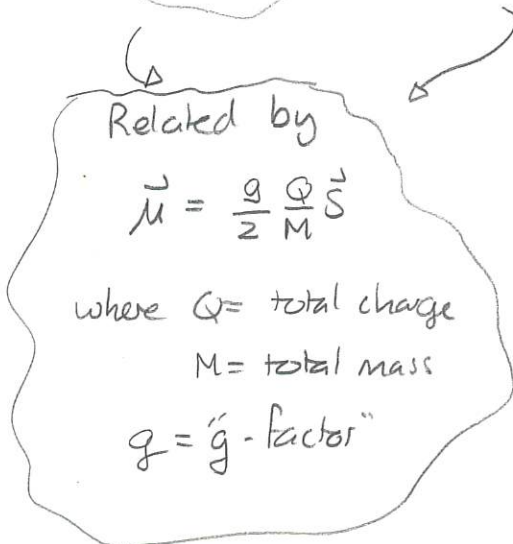 Related by
$\vec{\mu} = \frac{g}{2} \frac{Q}{M} \vec{S}$
where Q = total charge
M = total mass
g = "g-factor"